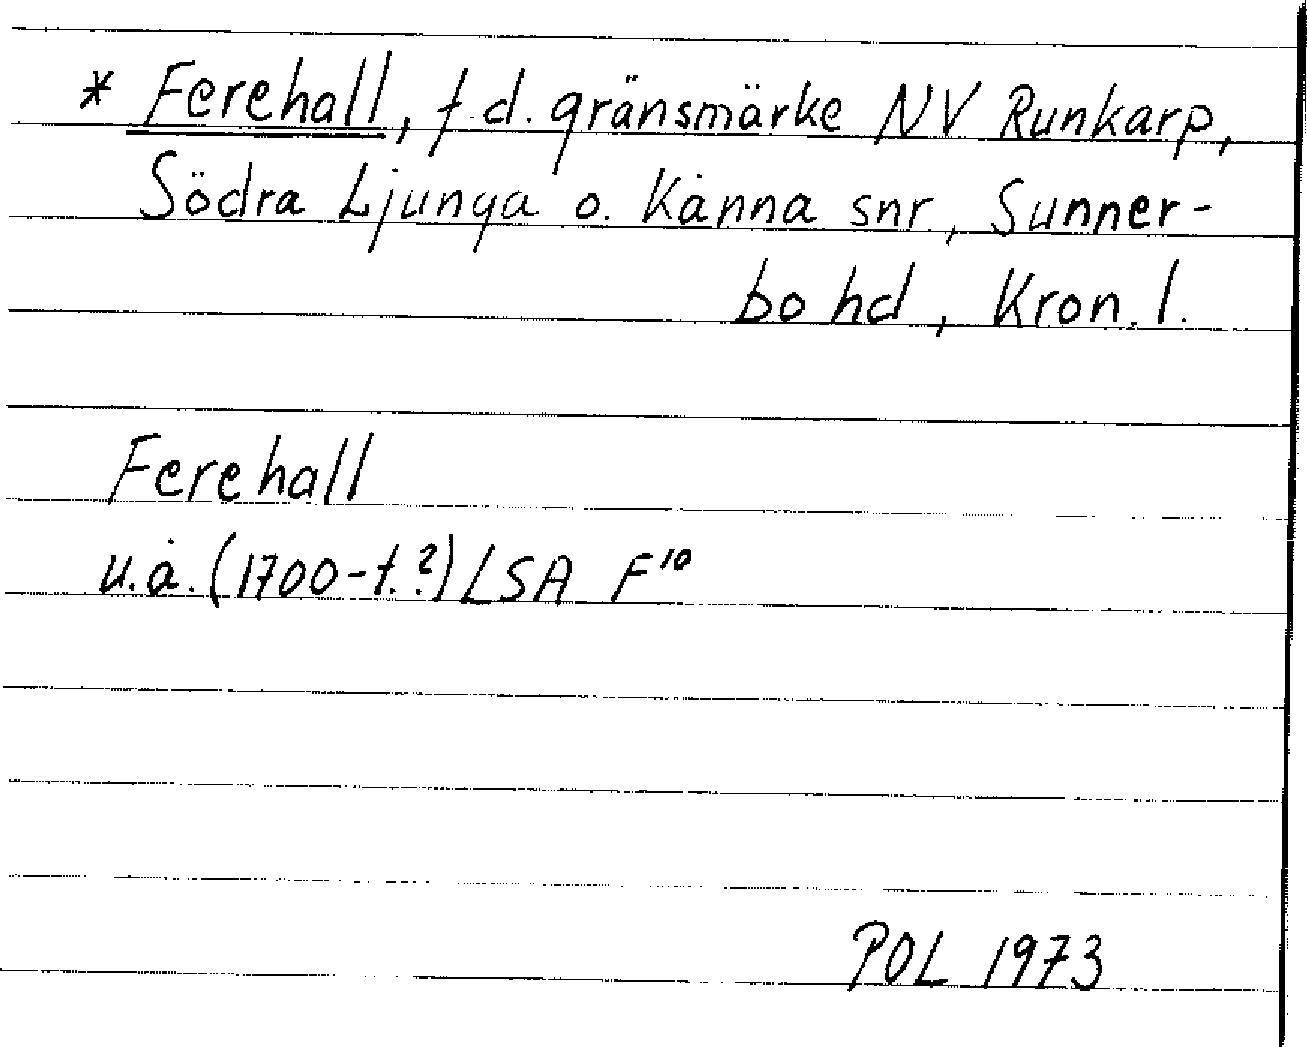 * Ferehall, f.d. gränsmärke NV Runkarp,
Södra Ljunga o. Kånna snr, Sunner-
bo hd, Kron. l.
Ferehall
u.å. (1700-t.?) LSA F¹⁰
POL 1973